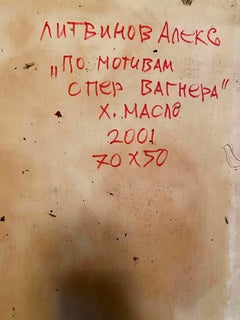 ЛИТВИНОВ АЛЕКС
„ПО МОТИВАМ
ОПЕР ВАГНЕРА"
Х. МАСЛО
2001
70 X 50